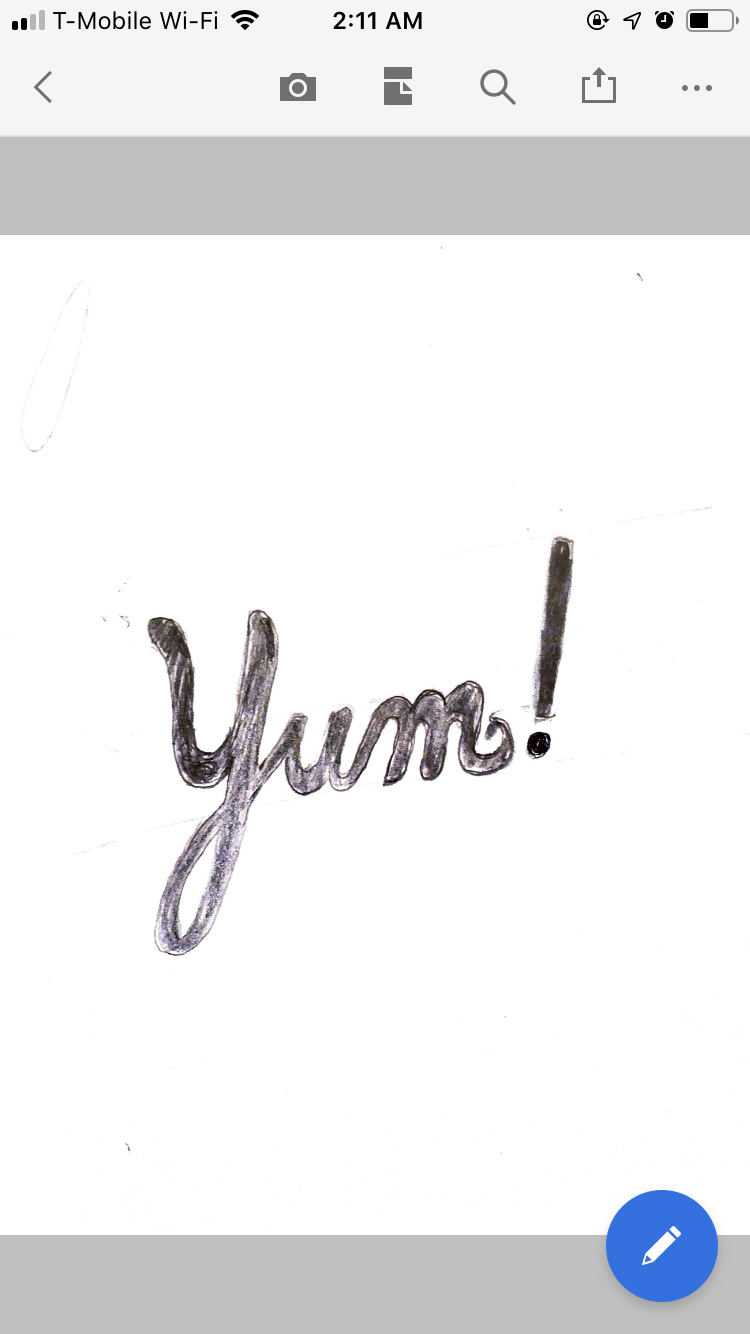 T-Mobile Wi-Fi 2:11 AM
Yum!